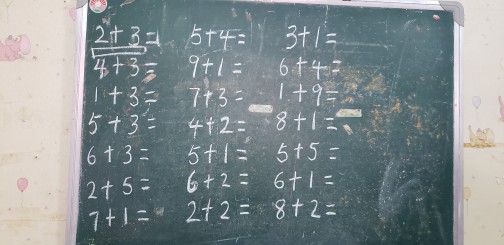 2+3= 5+4= 3+1=
4+3= 9+1= 6+4=
1+3= 7+3= 1+9=
5+3= 4+2= 8+1=
6+3= 5+1= 5+5=
2+5= 6+2= 6+1=
7+1= 2+2= 8+2=